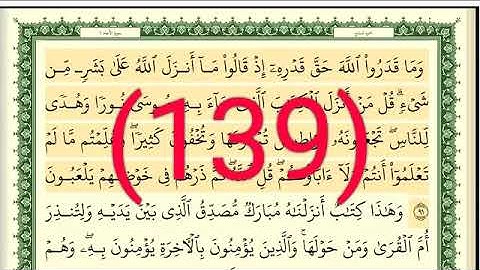 الجزء السابع سورة الأنعام ٦
وَمَا قَدَرُوا۟ ٱللَّهَ حَقَّ قَدْرِهِۦٓ إِذْ قَالُوا۟ مَآ أَنزَلَ ٱللَّهُ عَلَىٰ بَشَرٍ مِّن
شَىْءٍۗ قُلْ مَنْ أَنزَلَ ٱلْكِتَٰبَ ٱلَّذِى جَآءَ بِهِۦ مُوسَىٰ نُورًا وَهُدًى
لِّلنَّاسِۖ تَجْعَلُونَهُۥ قَرَاطِيسَ تُبْدُونَهَا وَتُخْفُونَ كَثِيرًاۖ وَعُلِّمْتُم مَّا لَمْ
تَعْلَمُوٓا۟ أَنتُمْ وَلَآ ءَابَآؤُكُمْۖ قُلِ ٱللَّهُۖ ثُمَّ ذَرْهُمْ فِى خَوْضِهِمْ يَلْعَبُونَ
٩١ وَهَٰذَا كِتَٰبٌ أَنزَلْنَٰهُ مُبَارَكٌ مُّصَدِّقُ ٱلَّذِى بَيْنَ يَدَيْهِ وَلِتُنذِرَ
أُمَّ ٱلْقُرَىٰ وَمَنْ حَوْلَهَاۚ وَٱلَّذِينَ يُؤْمِنُونَ بِٱلْءَاخِرَةِ يُؤْمِنُونَ بِهِۦۖ وَهُمْ
(139)